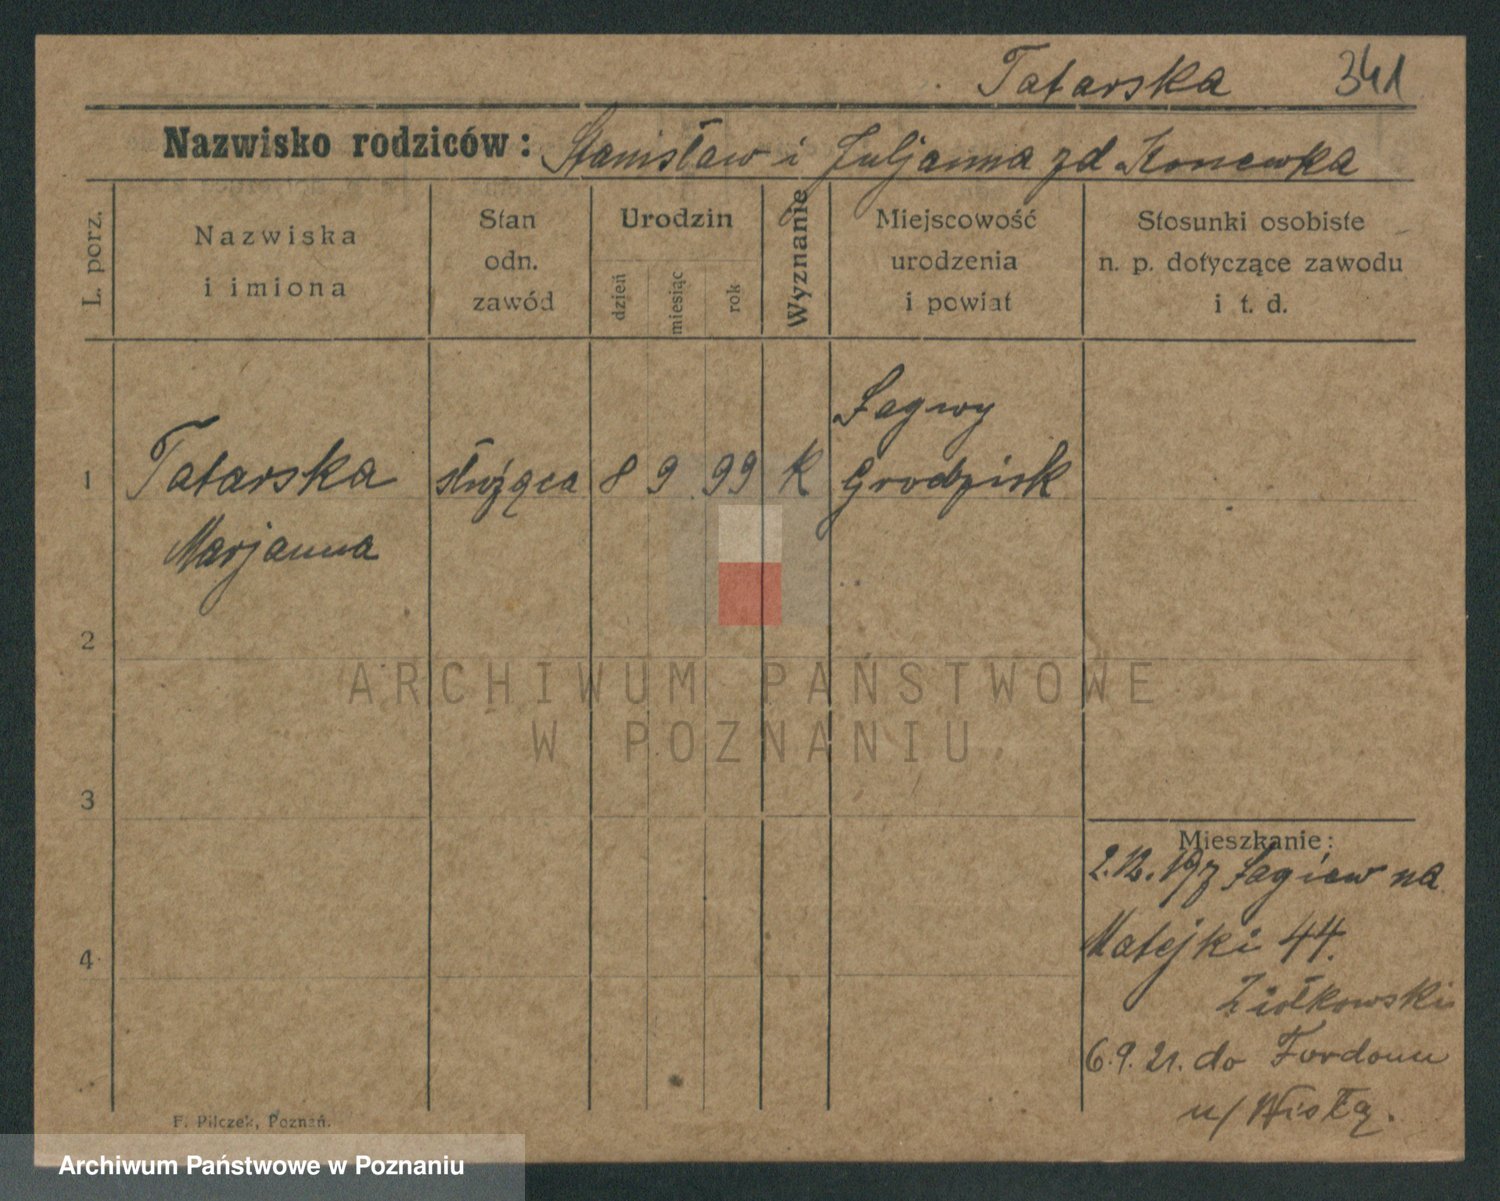 Tatarska 341
Nazwisko rodziców: Stanisław i Juljanna zd Konewka
L. porz.
Nazwiska
i imiona
Stan
odn.
zawód
Urodzin
dzień
miesiąc
rok
Wyznanie
Miejscowość
urodzenia
i powiat
Stosunki osobiste
n. p. dotyczące zawodu
i t. d.
1 Tatarska służąca 8 9 99 k Łagwy
Grodzisk
Marjanna
2
ARCHIWUM PAŃSTWOWE
W POZNANIU
3
Mieszkanie:
2.12. na
4 Matejki 44.
Ziółkowski
6.9.21. do Fordonu
n/Wisłą.
F. Pilczek, Poznań.
Archiwum Państwowe w Poznaniu